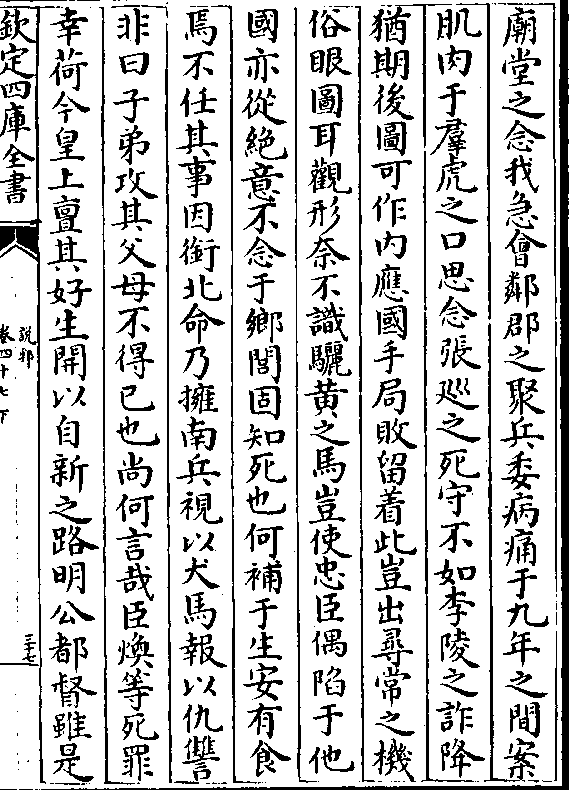 廟堂之念我急會鄰郡之聚兵委病痛于九年之間案
肌肉于羣虎之口思念張廵之死守不如李陵之詐降
猶期後圖可作内應國手局敗留着此豈出尋常之機
俗眼圖耳觀形奈不識驪黄之馬豈使忠臣偶陷于他
國亦從絶意不念于鄉閭固知死也何補于生安有食
焉不任其事因銜北命乃擁南兵視以犬馬報以仇讐
非曰子弟攻其父母不得已也尚何言哉臣煥等死罪
幸荷今皇上亶其好生開以自新之路明公都督雖是
欽定四庫全書
說郛
卷四十七下
三十七